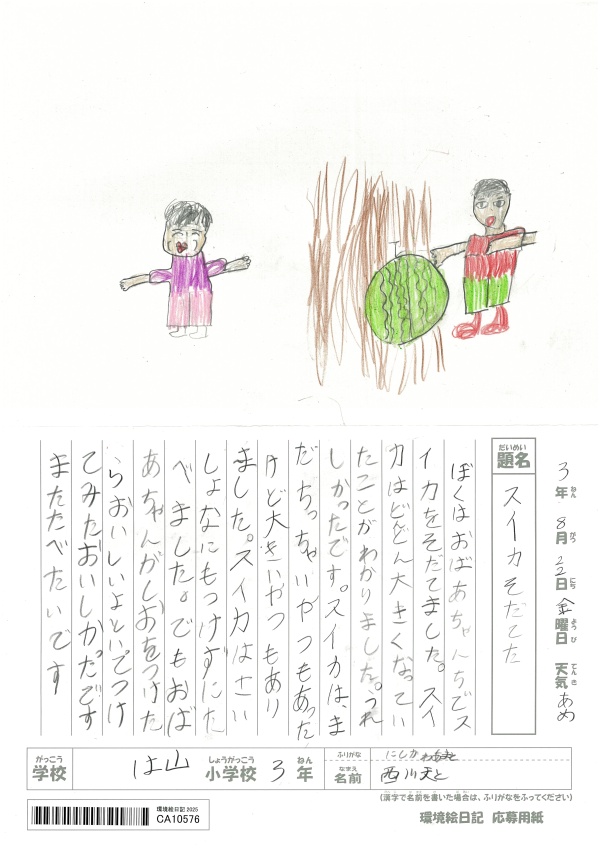 3年ねん 8月がつ 22日にち 金曜日ようび 天気てんき あめ
だいめい
題名
スイカそだてた
ぼくはおばあちゃんちでス
イカをそだてました。スイ
カはどんどん大きくなってい
たことがわかりました。うれ
しかったです。スイカは、ま
だちっちゃいやつもあった
けど大きいやつもあり
ました。スイカはさい
しょなにもつけずにた
べました。でもおば
あちゃんがしおをつけた
らおいしいよといてつけ
てみたおいしかたです
またたべたいです
がっこう
学校
は山 小学校しょうがっこう 3年ねん
ふりがな にしか
なまえ
名前 西川天と
(漢字で名前を書いた場合は、ふりがなをふってください)
環境絵日記 2025
CA10576
環境絵日記 応募用紙